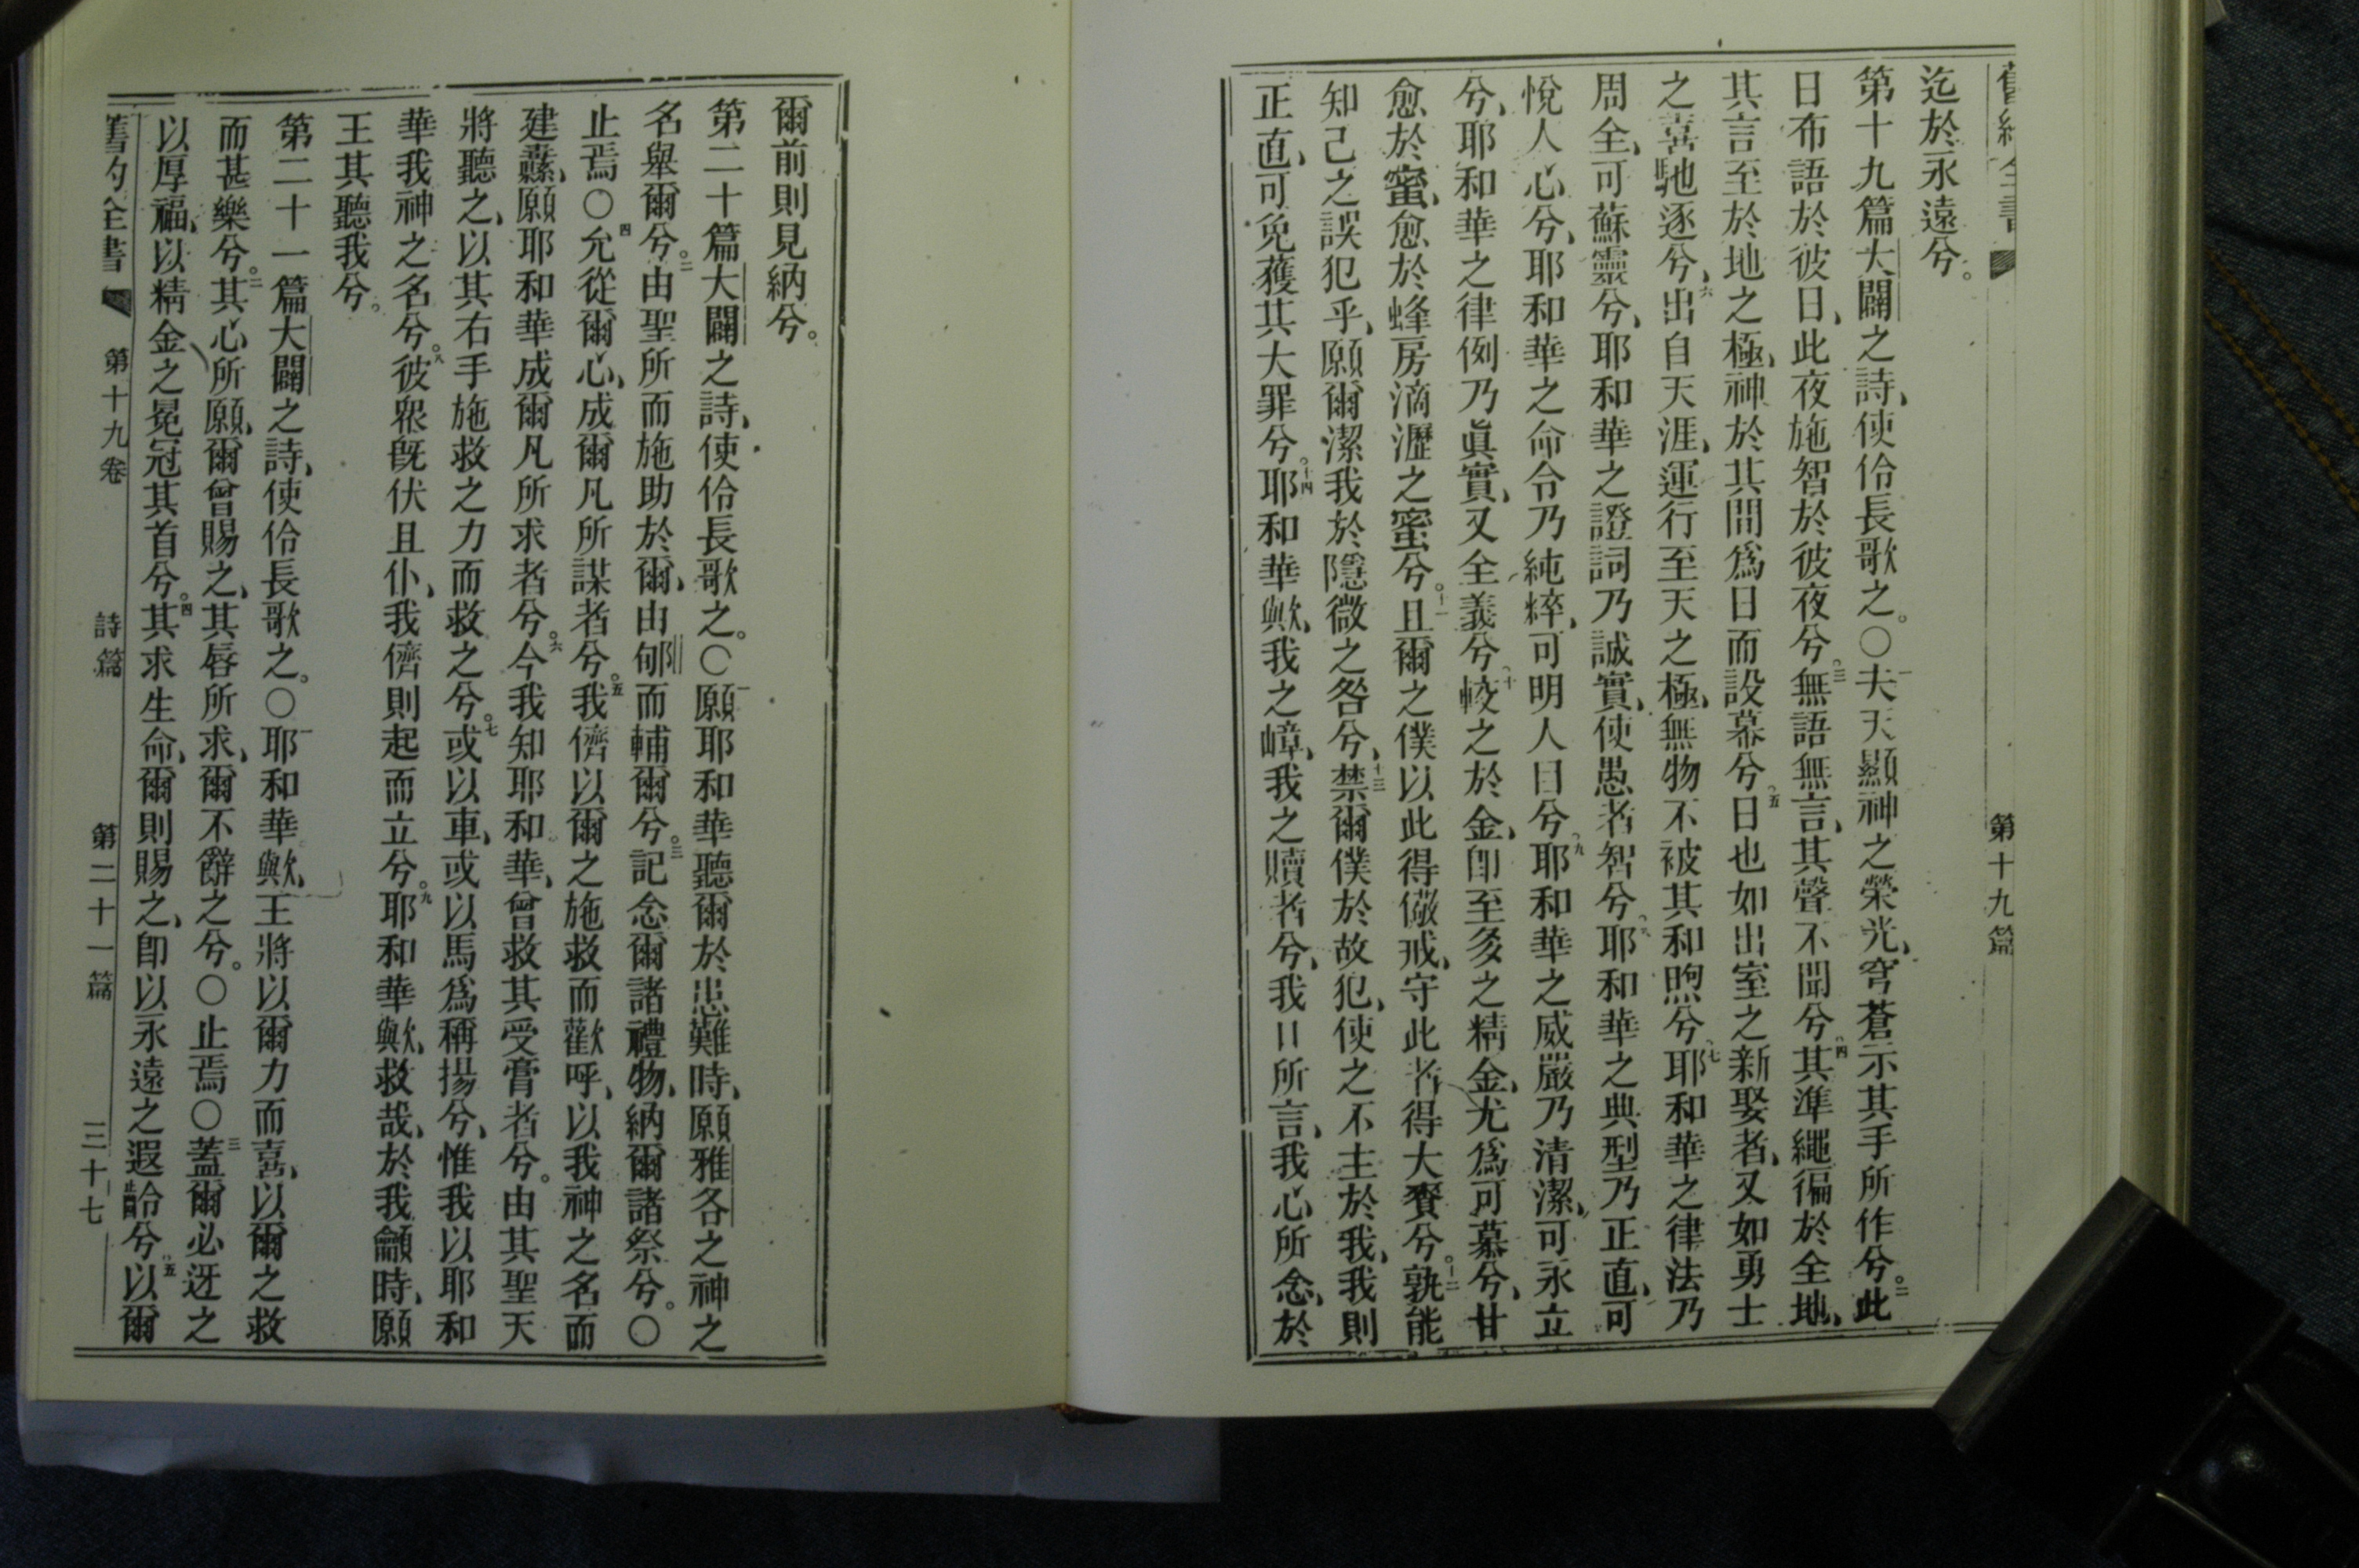 第十九篇
迄於永遠兮。
第十九篇大闢之詩、使伶長歌之。○一夫天顯神之榮光、穹蒼示其手所作兮。二此
日布語於彼日、此夜施智於彼夜兮、三無語無言、其聲不聞兮、四其準繩徧於全地、
其言至於地之極、神於其間爲日而設幕兮、五日也如出室之新娶者、又如勇士
之喜馳逐兮、六出自天涯、運行至天之極、無物不被其和煦兮、七耶和華之律法乃
周全、可蘇靈兮、耶和華之證詞乃誠實、使愚者智兮、八耶和華之典型乃正直、可
悅人心兮、耶和華之命令乃純粹、可明人目兮、九耶和華之威嚴乃清潔、可永立
兮、耶和華之律例乃眞實、又全義兮、十較之於金、卽至多之精金、尤爲可慕兮、甘
愈於蜜、愈於蜂房滴瀝之蜜兮。十一且爾之僕以此得儆戒、守此者得大賚兮。十二孰能
知己之誤犯乎、願爾潔我於隱微之咎兮、十三禁爾僕於故犯、使之不主於我、我則
正直、可免蓰其大罪兮。十四耶和華歟、我之嶂、我之贖者兮、我口所言、我心所念、於
爾前則見納兮。
第二十篇大闢之詩、使伶長歌之。○一願耶和華聽爾於患難時、願雅各之神之
名舉爾兮。二由聖所而施助於爾、由郇而輔爾兮。三記念爾諸禮物、納爾諸祭兮。○
止焉○四允從爾心、成爾凡所謀者兮。五我儕以爾之施救而歡呼、以我神之名而
建纛、願耶和華成爾凡所求者兮。六今我知耶和華、曾救其受膏者兮。由其聖天
將聽之、以其右手施救之力而救之兮。七或以車、或以馬爲稱揚兮、惟我以耶和
華我神之名兮。八彼衆旣伏且仆、我儕則起而立兮。九耶和華歟、救哉、於我籲時、願
王其聽我兮。
第二十一篇大闢之詩、使伶長歌之。○一耶和華歟、王將以爾力而喜、以爾之救
而甚樂兮。二其心所願、爾曾賜之、其唇所求、爾不辭之兮。○止焉○三蓋爾必迓之
以厚福、以精金之冕冠其首兮。四其求生命、爾則賜之、卽以永遠之遐齡兮、五以爾
舊約全書 第十九卷 詩篇 第二十一篇 三十七